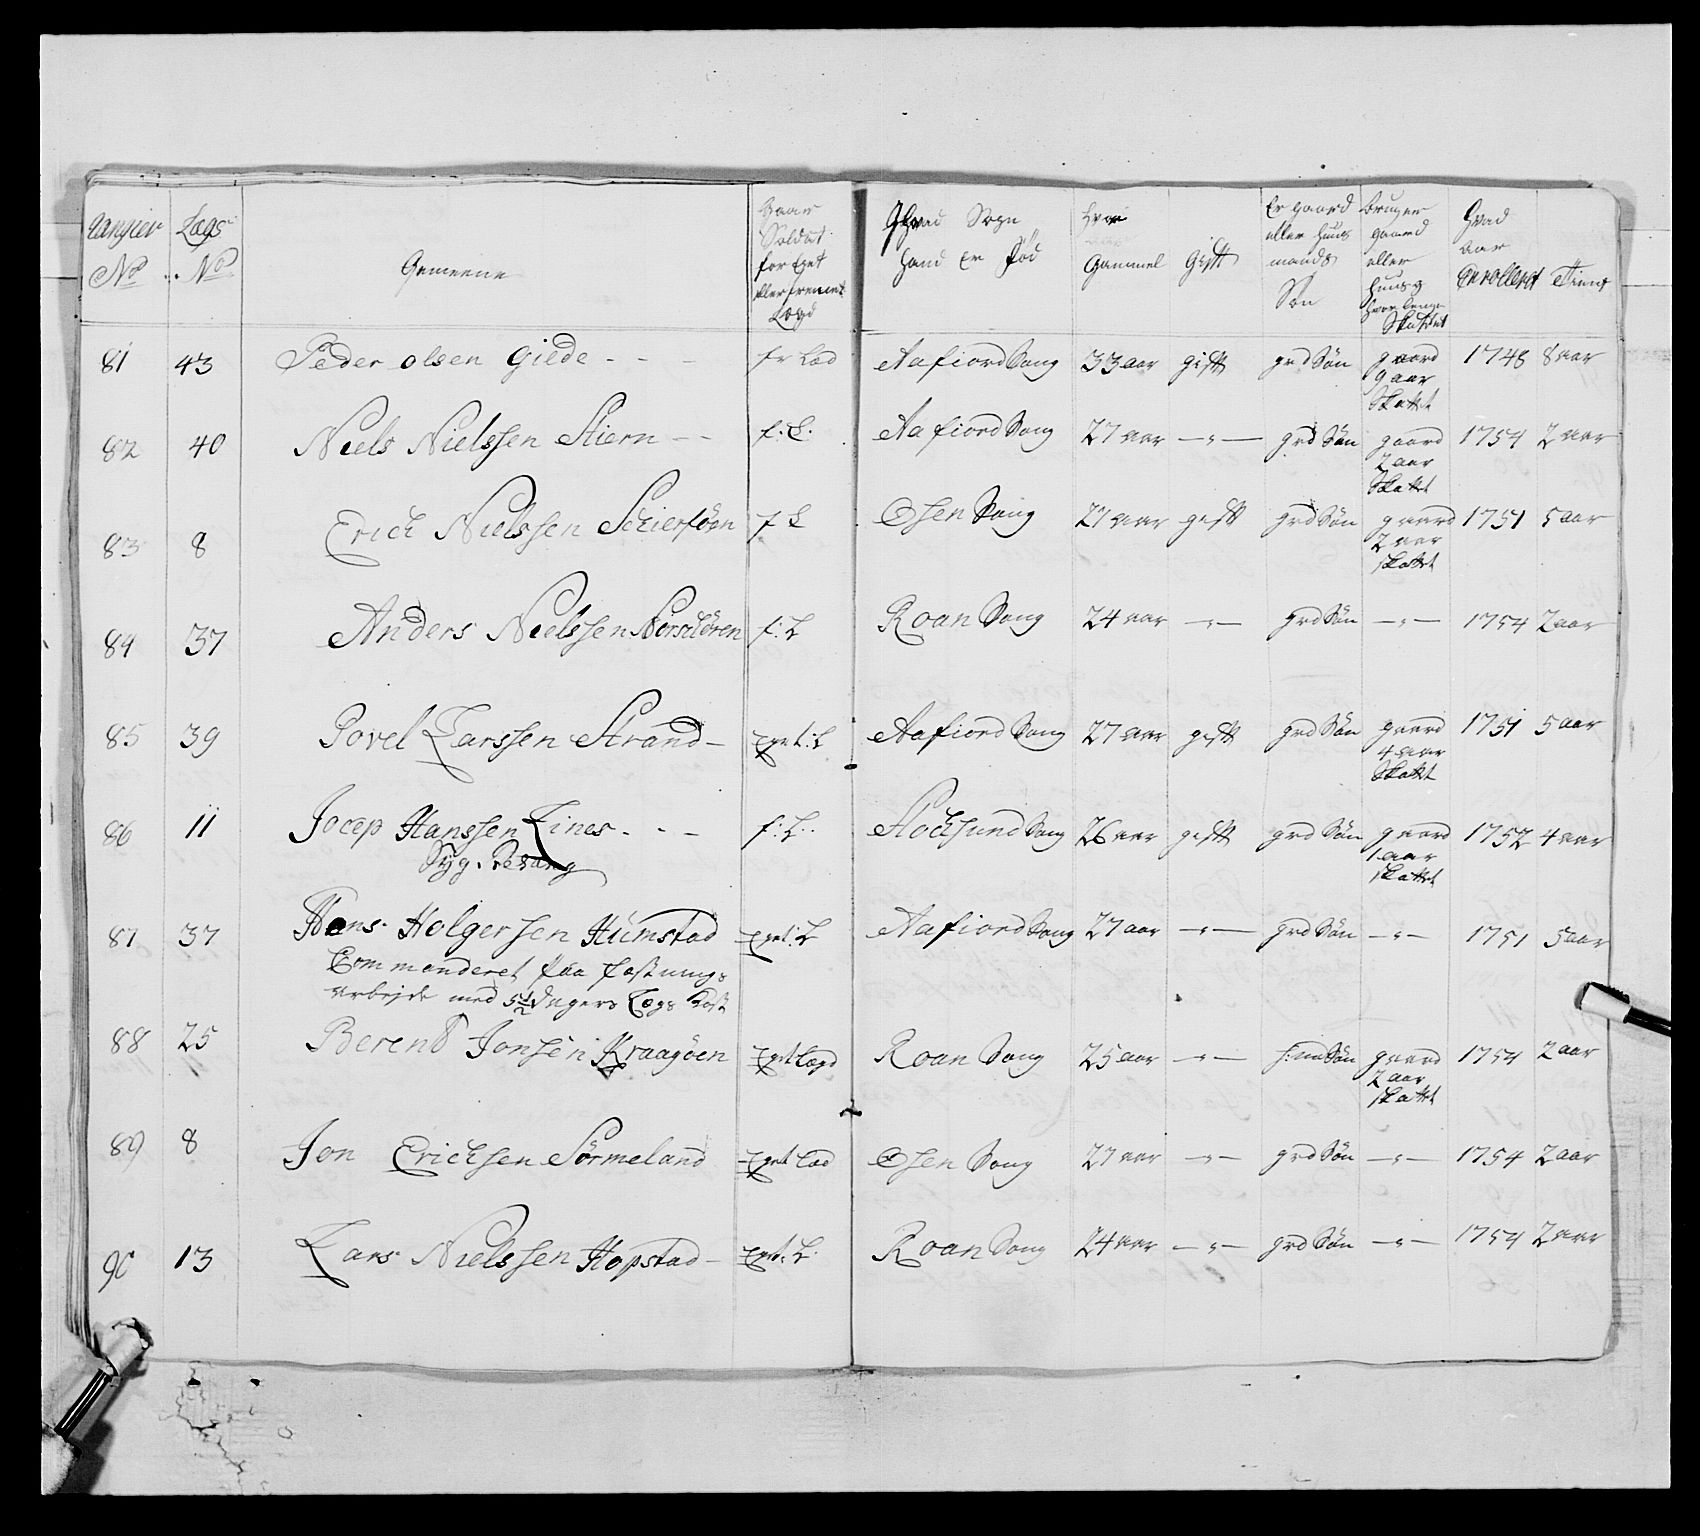 Rangier No Lægs No Gemeene Gaar Soldat for Eget eller fremet Lægd Hvad Sogn hand er Fød Hvor Gammel Gift Er gaard eller huus mands Søn bruger gaard eller huus og hvor lenge Skattet Hvad aar Enrollert Tient
81 43 Peder olsen Giede - - - fr Læd Aafiord Sogn 33 aar gift grd Søn gaard 9 aar Skattet 1748 8 aar
82 40 Niels Nielssen Stiern - - f: L. Aafiord Sogn 27 aar — " — grd Søn gaard 2 aar Skattet 1754 2 aar
83 8 Erich Nielssen Schierføen f L Osen Sogn 27 aar gift grd Søn gaard 2 aar skattet 1751 5 aar
84 37 Anders Nielssen f: L Roan Sogn 24 aar — " — grd Søn — " — 1754 2 aar
85 39 Povel Larssen Strand - Eget: L Aafiord Sogn 27 aar gift grd Søn gaard 4 aar Skattet 1751 5 aar
86 11 Jocep Hanssen Lines - - - f: L. Stochsund Sogn 26 aar gift grd Søn gaard 1 aar skattet 1752 4 aar
Syg.
87 37 Hans Holgersen Humstad Eget: L Aafiord Sogn 27 aar — " — grd Søn — " — 1751 5 aar
Commanderet paa Fæstnings
arbejde med 5½ dagers Lægs Kost
88 25 Berent Jonsen Kraagøen Eget Lægd Roan Sogn 25 aar — " — Søn gaard 2 aar skattet 1754 2 aar
89 8 Jon Erichsen Sørmeland Eget Læd Osen Sogn 27 aar — " — grd Søn — " — 1754 2 aar
90 13 Lars Nielssen Hopstad - Eget: L. Roan Sogn 24 aar — " — grd Søn — " — 1754 2 aar